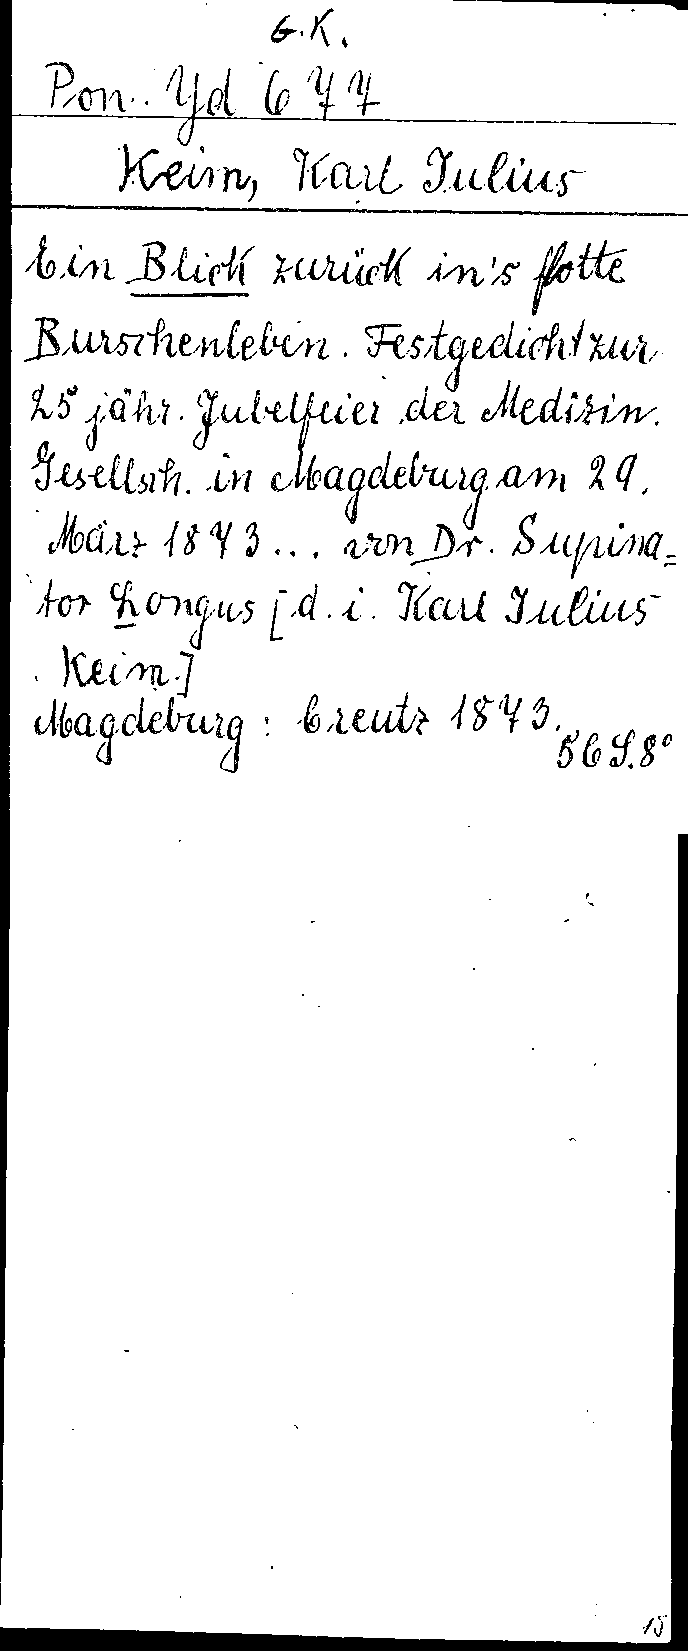 G.K.
Pon. Yd 677
Keim, Karl Julius
Ein Blick zurück in's flotte
Burschenleben. Festgedicht zur
25 jähr. Jubelfeier der Medizin.
Gesellsch. in Magdeburg am 29.
März 1873... von Dr. Supina=
tor Longus [d. i. Karl Julius
Keim.]
Magdeburg: Creutz 1873.
56 S. 8°
15